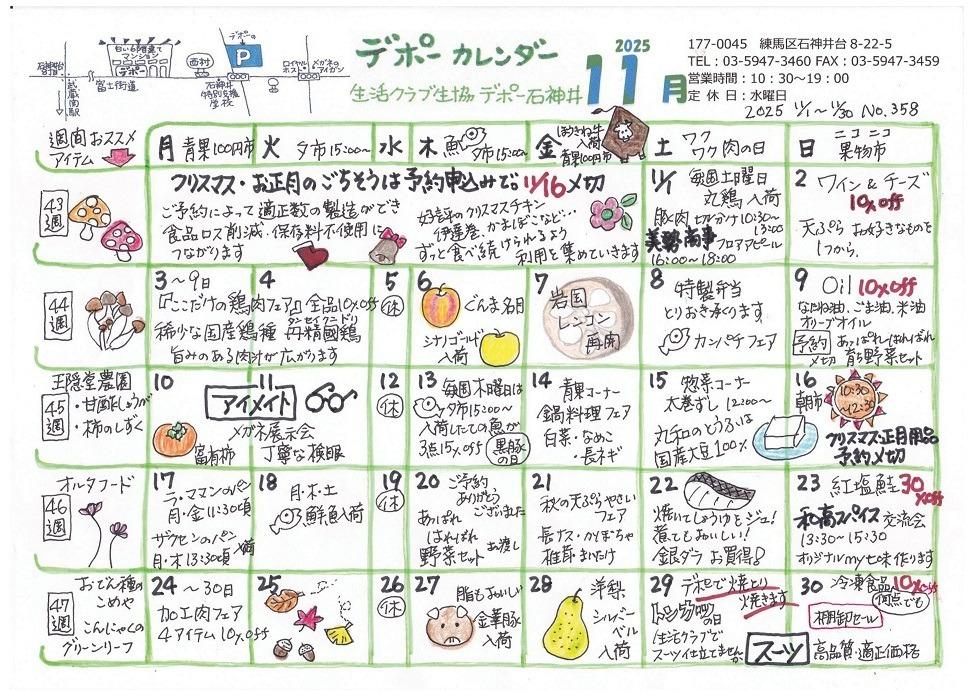 デポー カレンダー
2025
11月
生活クラブ生協 デポー石神井
177-0045 練馬区石神井台8-22-5
TEL：03-5947-3460 FAX：03-5947-3459
営業時間：10：30～19：00
定 休 日：水曜日
2025 11/1～11/30 No.358
石神井台8丁目
武蔵関駅
富士街道
白い6階建てマンション
デポー
西村
石神井特別支援学校
デポーの
P
ロイヤルホスト
メガネのアイガン
週間おススメ
アイテム
月 青果100円市
火 夕市15:00～
水
木 魚 夕市15:00～
金 ほうきね牛入荷 青果100円市
土 ワクワク肉の日
日 ニコニコ果物市
43週
クリスマス・お正月のごちそうは予約申込みで。11/16〆切
ご予約によって適正数の製造ができ
食品ロス削減・保存料不使用に
つながります
好評のクリスマスチキン
伊達巻、かまぼこなど…
ずっと食べ続けられるよう
利用を集めていきます
11/1 毎週土曜日
丸鶏入荷
豚肉切分け10:30～13:00
美勢商事 フロアアピール
16:00～18:00
2 ワイン&チーズ
10%off
天ぷら お好きなものを
1つから。
44週
3～9日
4
『ここだけの鶏肉フェア』全品10%off
稀少な国産鶏種 丹精國鶏
タンセイクニドリ
旨みのある肉汁が広がります
5 休
6 ぐんま名月
シナノゴールド
入荷
7
岩国
レンコン
再開
8 特製弁当
とりおき承ります
カンパチフェア
9 Oil 10%off
なたね油、ごま油、米油
オリーブオイル
予約 あっぱれはればれ
〆切 育ち野菜セット
王隠堂農園
45週
・甘酢しょうが
・柿のしずく
10
富有柿
11
アイメイト
メガネ展示会
丁寧な検眼
12 休
13 毎週木曜日は
夕市15:00～
入荷したての魚が
3点15%off
黒豚の日
14 青果コーナー
鍋料理フェア
白菜・なめこ
・長ネギ
15 惣菜コーナー
太巻ずし 12:00～
丸和のとうふは
国産大豆100%
16
朝市
10:30～12:30
クリスマス・正月用品
予約〆切
オルタフード
46週
17
ラ・ママンのパン
月・金11:30頃
ザクセンのパン
月・木13:30頃入荷
18 月・木・土
鮮魚入荷
19 休
20 ご予約
ありがとう
ございました
あっぱれ
はればれ
野菜セット お渡し
21
秋の天ぷらやさい
フェア
長ナス・かぼちゃ
椎茸まいたけ
22
焼いてしょうゆとジュ!
煮てもおいしい!
銀ダラ お買得!
23 紅塩鮭30%off
和高スパイス 交流会
13:30～15:30
オリジナルmy七味作ります
おでん種の
47週
こめや
こんにゃくの
グリーンリーフ
24 ～30日
加工肉フェア
4アイテム10%off
25
26 休
27 脂もおいしい
金華豚
入荷
28 洋梨
シルバーベル
入荷
29 デポーで焼とり
焼きます
の日
生活クラブで
スーツ仕立てませんか
スーツ
30 冷凍食品10%off
何点でも
棚卸セール
高品質・適正価格